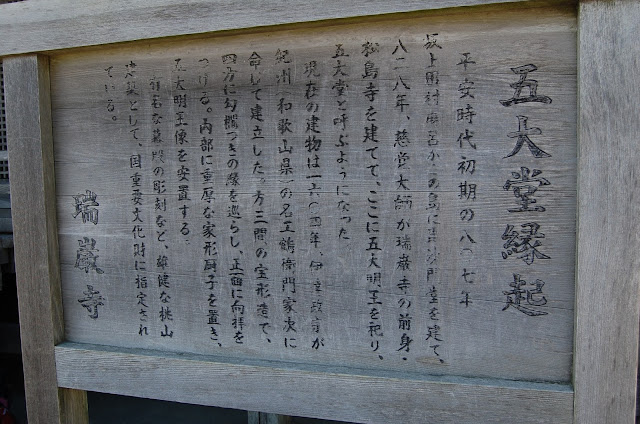 五大堂縁起
平安時代初期の八〇七年
坂上田村麻呂がこの島に毘沙門堂を建て、
八二八年、慈覚大師が瑞巌寺の前身・
松島寺を建てて、ここに五大明王を祀り、
五大堂と呼ぶようになった
現在の建物は一六〇四年、伊達政宗が
紀州(和歌山県)の名工鶴衛門家次に
命じて建立した。方三間の宝形造で、
四方に勾欄つきの縁を巡らし、正面に向拝を
つける。内部に重厚な家形厨子を置き、
五大明王像を安置する。
有名な蟇股の彫刻など、雄健な桃山
建築として、国重要文化財に指定され
ている。
瑞巌寺